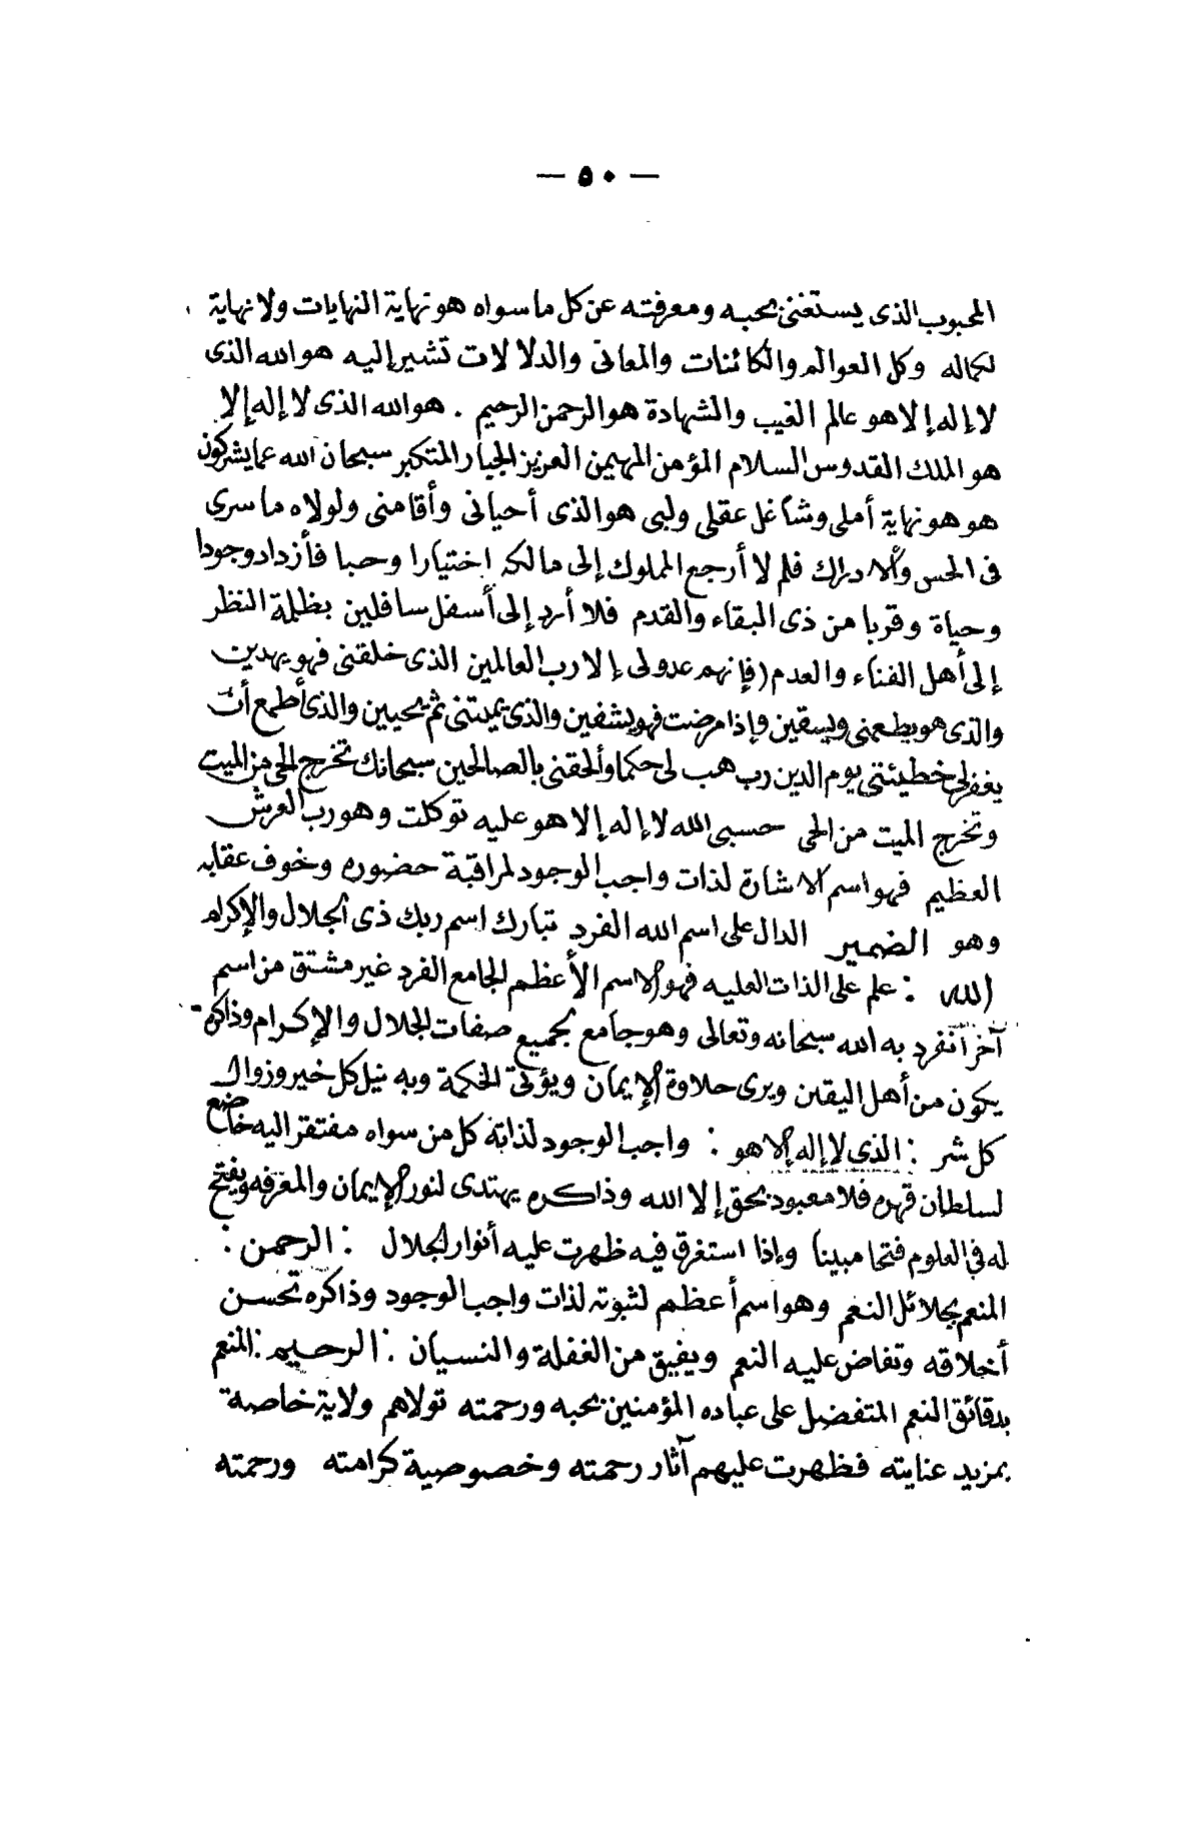 — ٥٠ —
المحبوب الذى يستغنى بحبه ومعرفته عن كل ما سواه هو نهاية النهايات ولا نهاية
لكماله وكل العوالم والكائنات والمعانى والدلالات تشير إليه هو الله الذى
لا إله إلا هو عالم الغيب والشهادة هو الرحمن الرحيم . هو الله الذى لا إله إلا
هو الملك القدوس السلام المؤمن المهيمن العزيز الجبار المتكبر سبحان الله عما يشركون
هو هو نهاية أملى وشاغل عقلى ولبى هو الذى أحيانى وأقامنى ولولاه ما سرى
فى الحس والادراك فلم لا أرجع المملوك إلى مالكه اختيارا وحبا فأزداد وجودا
وحياة وقربا من ذى البقاء والقدم فلا أرد إلى أسفل سافلين بظلمة النظر
إلى أهل الفناء والعدم (فإنهم عدو لى إلا رب العالمين الذى خلقنى فهو يهدين
والذى هو يطعمنى ويسقين وإذا مرضت فهو يشفين والذى يميتنى ثم يحيين والذى أطمع أن
يغفر لى خطيئتى يوم الدين رب هب لى حكما وألحقنى بالصالحين سبحانك تخرج الحى من الميت
وتخرج الميت من الحى حسبى الله لا إله إلا هو عليه توكلت وهو رب العرش
العظيم فهو اسم الاشارة لذات واجب الوجود لمراقبة حضوره وخوف عقابه
وهو الضمير الدال على اسم الله الفرد تبارك اسم ربك ذى الجلال والإكرام
(الله : علم على الذات العليه فهو الاسم الأعظم الجامع الفرد غير مشتق من اسم
آخر انفرد به الله سبحانه وتعالى وهو جامع لجميع صفات الجلال والإكرام وذاكره
يكون من أهل اليقين ويرى حلاوة الإيمان ويؤتى الحكمة وبه نيل كل خير وزوال
كل شر : الذى لا إله إلا هو : واجب الوجود لذاته كل من سواه مفتقر اليه خاضع
لسلطان قهره فلا معبود بحق إلا الله وذاكره يهتدى لنور الإيمان والمعرفه ويفتح
له فى العلوم فتحا مبينا وإذا استغرق فيه ظهرت عليه أنوار الجلال : الرحمن :
المنعم بجلائل النعم وهو اسم أعظم لثبوته لذات واجب الوجود وذاكره تحسن
أخلاقه وتفاض عليه النعم ويفيق من الغفلة والنسيان : الرحيم : المنعم
بدقائق النعم المتفضل على عباده المؤمنين بحبه ورحمته تولاهم ولاية خاصة
بمزيد عنايته فظهرت عليهم آثار رحمته وخصوصية كرامته ورحمته